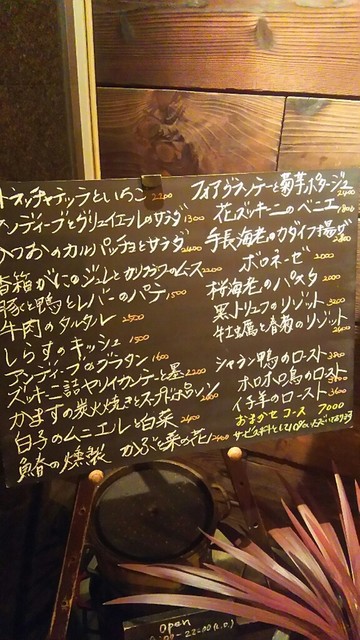 ストラッチャテッラといちご 2200
アンディーブとグリュイエールのサラダ 1300
かつおのカルパッチョとサラダ 2400
香箱がにのジュレとカリフラワームース 2200
豚と鴨とレバーのパテ 1500
牛肉のタルタル 2500
しらすのキッシュ 1500
アンディーブのグラタン 1600
ズッキーニ詰ヤリイカソテーと墨 2200
かますの炭火焼きと
白子のムニエルと白菜 2400
鰆の燻製 かぶと菜の花
フォアグラソテーと菊芋ポタージュ 2400
花ズッキーニのベニエ 1800
手長海老のカダイフ揚げ
ボロネーゼ 2000
桜海老のパスタ 2000
黒トリュフのリゾット 3200
牡蠣と春菊のリゾット 2600
シャラン鴨のロースト
ホロホロ鳥のロースト
仔羊のロースト 3600
おまかせコース 7000
サービス料として10%いただいております
open
22:00(L.O.)